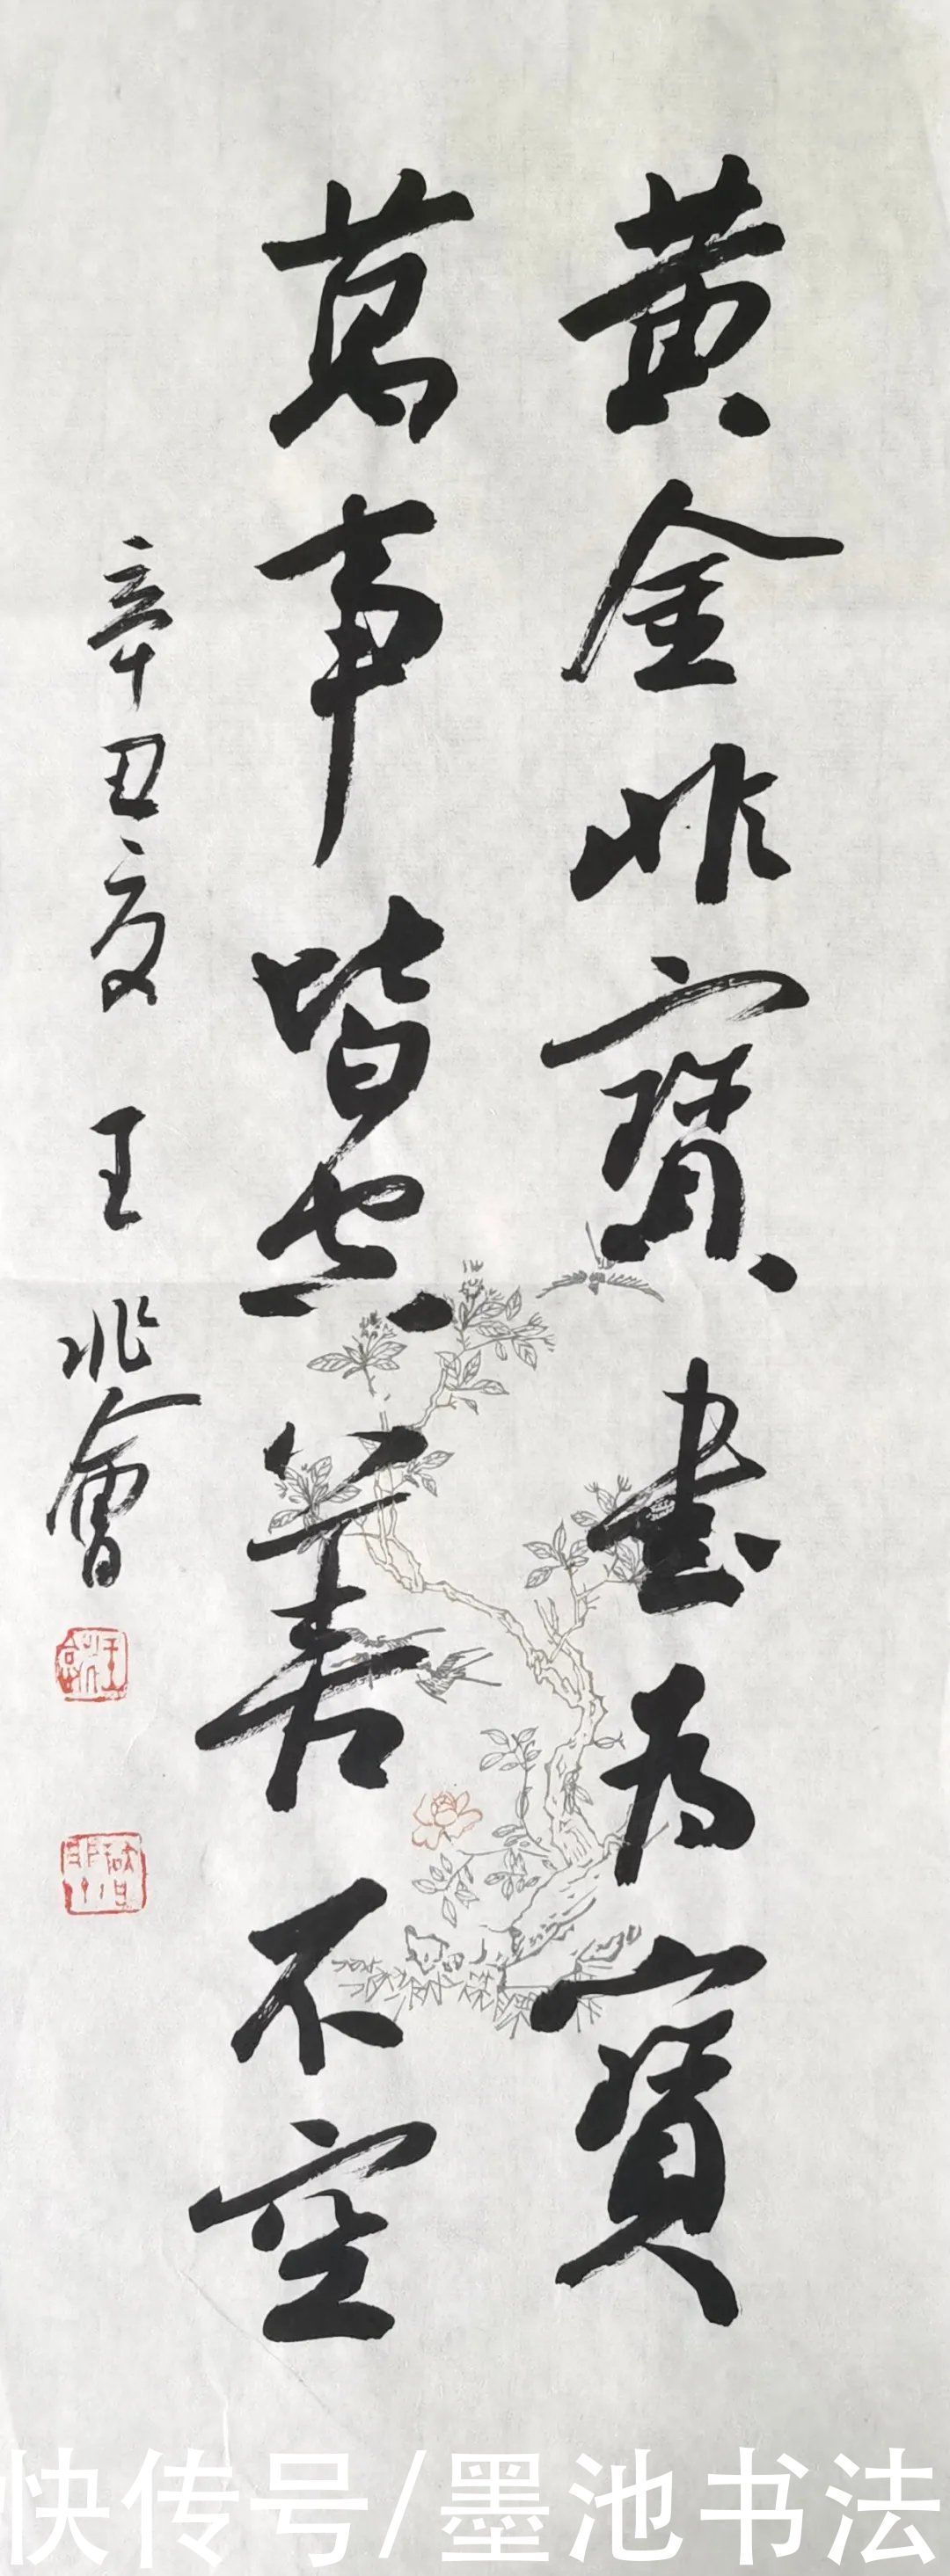 黄金非寳書為寳
萬事皆空善不空
辛丑夏 王兆會
快传号/墨池书法